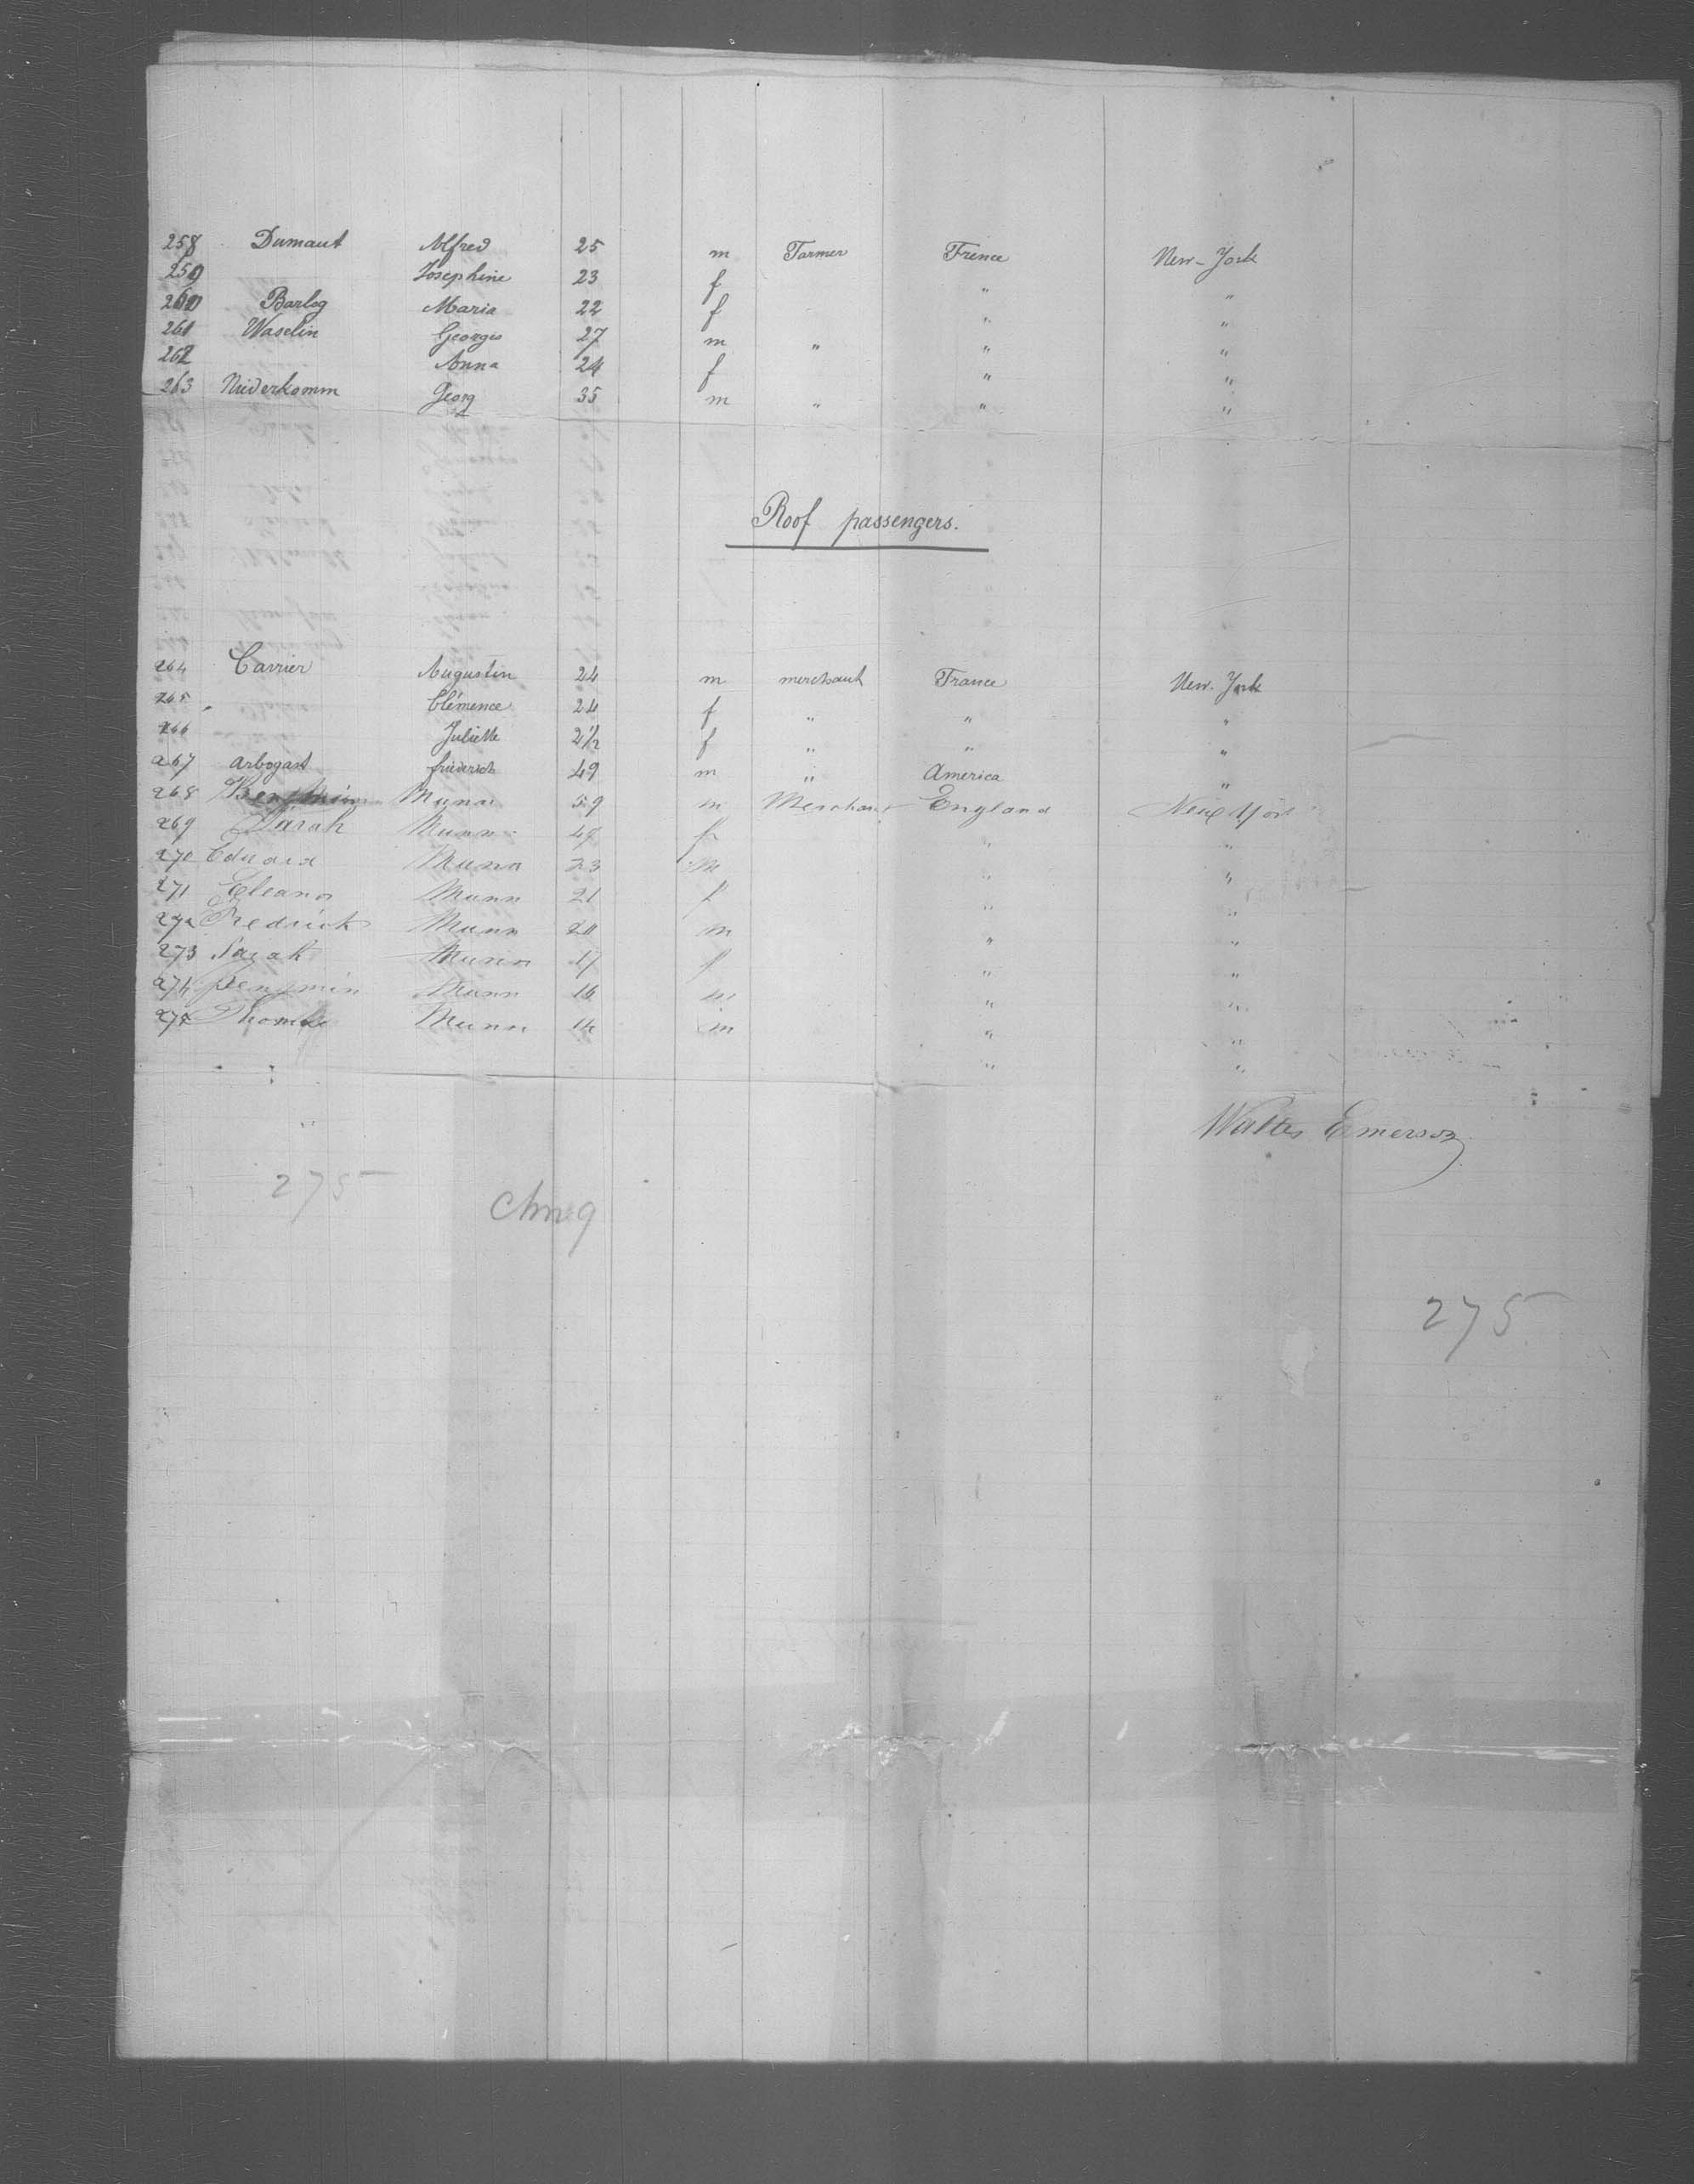 258 Dumaut Alfred 25 m Farmer Frence New-York
259 Josephine 23 f " "
260 Barlog Maria 22 f " "
261 Waselin Georges 27 m " " "
262 Anna 24 f " "
263 Niederkomm Georg 35 m " " "
Roof passengers.
264 Carrier Augustin 24 m merchant France New-York
265 Clémence 24 f " " "
266 Juliette 2½ f " " "
267 Arbogast friederich 49 m " America "
268 Benjmin Munn 59 m Merchant England New York
269 Sarah Munn 49 f " "
270 Eduard Munn 23 m " "
271 Eleanor Munn 21 f " "
272 Fredrick Munn 20 m " "
273 Sarah Munn 17 f " "
274 Benjmin Munn 16 m " "
275 Thomas Munn 14 m " "
" "
Walter Emerson
275
275